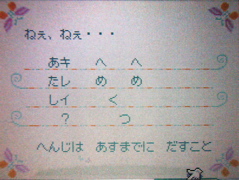 ねぇ、ねぇ・・・
あキ　へ　へ
たレ　め　め
しイ　く
？　つ
へんじは　あすまでに　だすこと